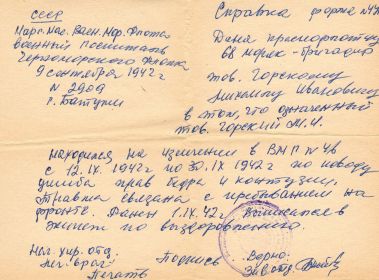 СССР
Нар. Ком. Воен. Мор. Флота
военный Госпиталь
Черноморского Флота
9 сентября 1942 г
N 2909
г. Батуми
Справка форма №
Дана краснофлотцу
бригады
тов. Горскому
Михаилу Ивановичу
в том, что означенный
тов. Горский М. И.
находился на излечении в ВМГ N
с 12. IX. 1942 г по 30. IX 1942 г по поводу
ушиба прав бедра и контузии.
Травма связана с пребыванием на
фронте. Дана 1. IX. 42 г. Выписывается в
по выздоровлению.
Нач. хир. отд.
Печать
Подпись
Верно: